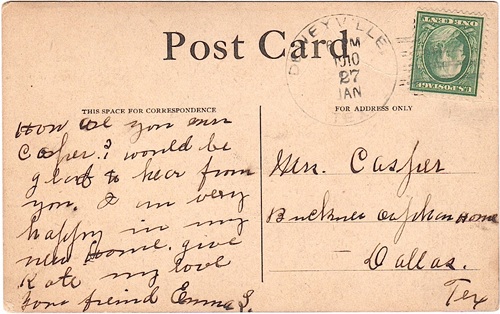 Post Card
DENEYVILLE
PM
1910
27
JAN
ONE CENT
U.S. POSTAGE
THIS SPACE FOR CORRESPONDENCE
FOR ADDRESS ONLY
How are you mrs
Casper? I would be
glad to hear from
you. I am very
happy in my
new home. give
Kate my love
your freind Emma S.
Mrs. Casper
Buckner orphan Home
Dallas.
Tex